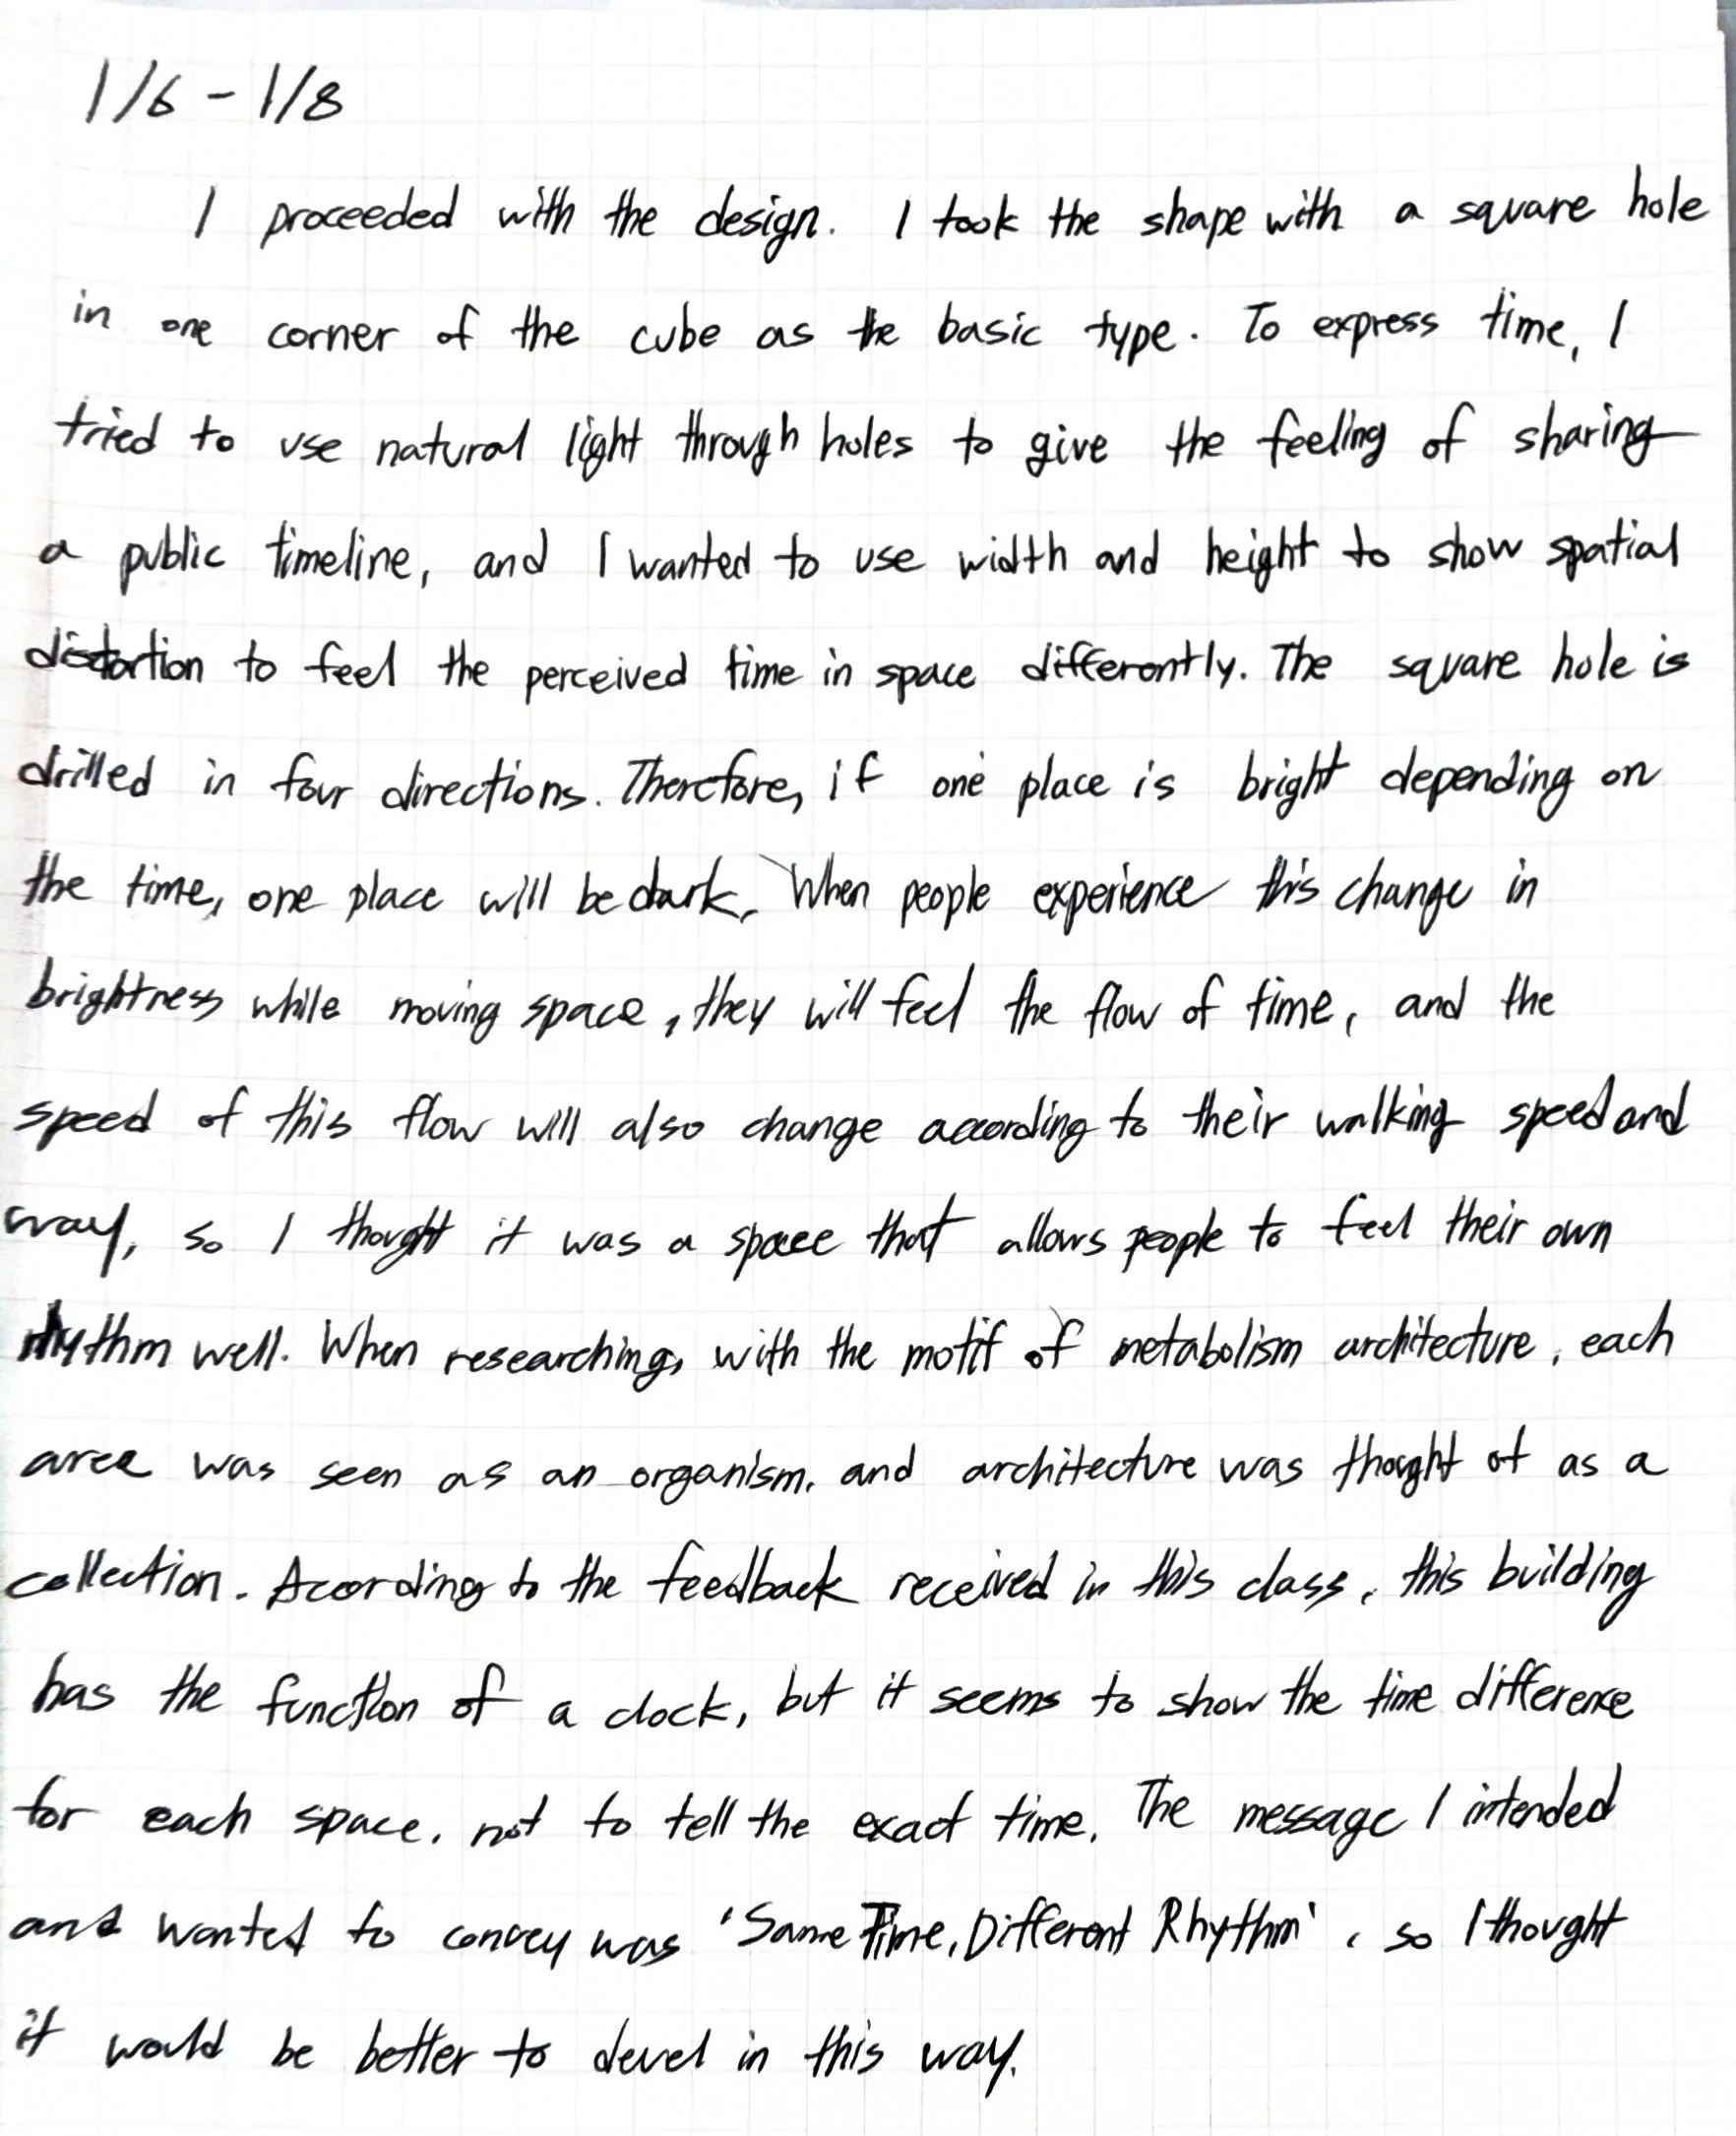 1/6 - 1/8
I proceeded with the design. I took the shape with a square hole
in one corner of the cube as the basic type. To express time, I
tried to use natural light through holes to give the feeling of sharing
a public timeline, and I wanted to use width and height to show spatial
distortion to feel the perceived time in space differently. The square hole is
drilled in four directions. Therefore, if one place is bright depending on
the time, one place will be dark. When people experience this change in
brightness while moving space, they will feel the flow of time, and the
speed of this flow will also change according to their walking speed and
way, so I thought it was a space that allows people to feel their own
rhythm well. When researching, with the motif of metabolism architecture, each
area was seen as an organism, and architecture was thought of as a
collection. Acording to the feedback received in this class, this building
has the function of a clock, but it seems to show the time difference
for each space, not to tell the exact time. The message I intended
and wanted to convey was 'Same Time, Different Rhythm', so I thought
it would be better to devel in this way.